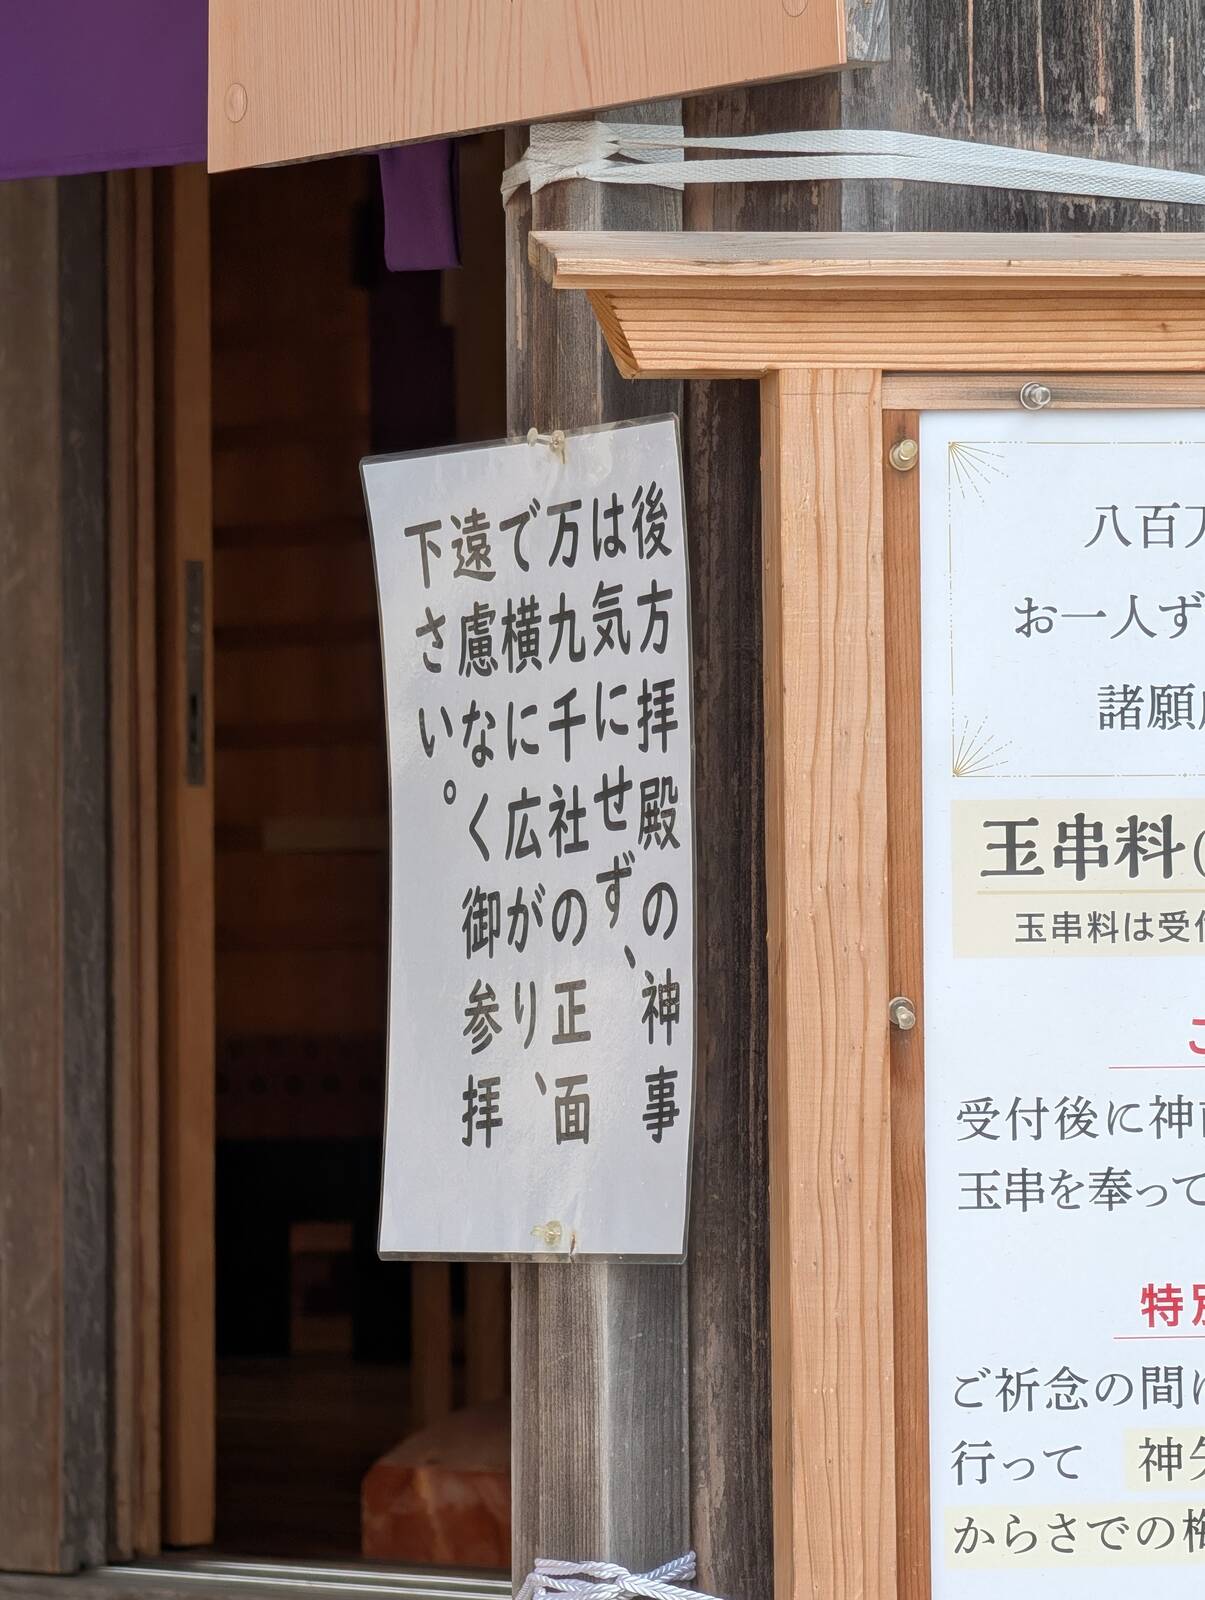 後方拝殿の神事
は気にせず、
万九千社の正面
で横に広がり、
遠慮なく御参拝
下さい。
八百万
お一人ず
諸願
玉串料(
玉串料は受付
受付後に神前
玉串を奉って
特別
ご祈念の間
行って 神
からさでの